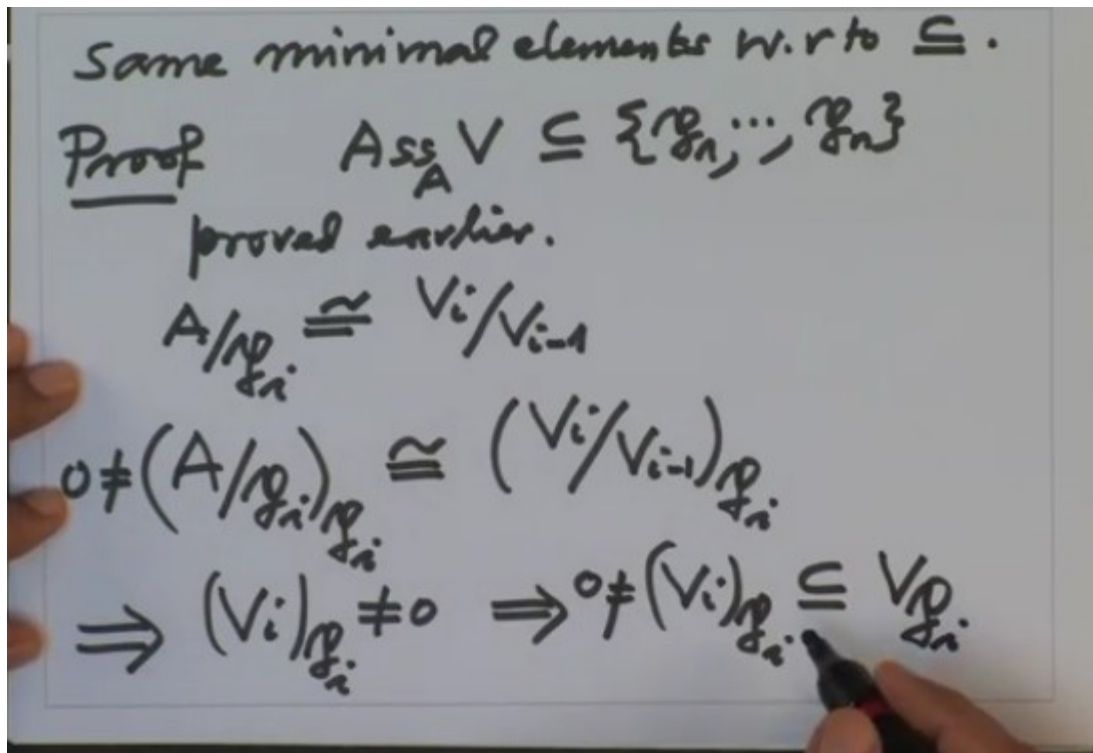 Same minimal elements w.r to ⊆.
Proof Ass_A V ⊆ {𝔭₁, ..., 𝔭ₙ}
proved earlier.
A/𝔭ᵢ ≅ Vᵢ/Vᵢ₋₁
0≠(A/𝔭ᵢ)_𝔭ᵢ ≅ (Vᵢ/Vᵢ₋₁)_𝔭ᵢ
⇒ (Vᵢ)_𝔭ᵢ ≠0 ⇒ 0≠(Vᵢ)_𝔭ᵢ ⊆ V_𝔭ᵢ